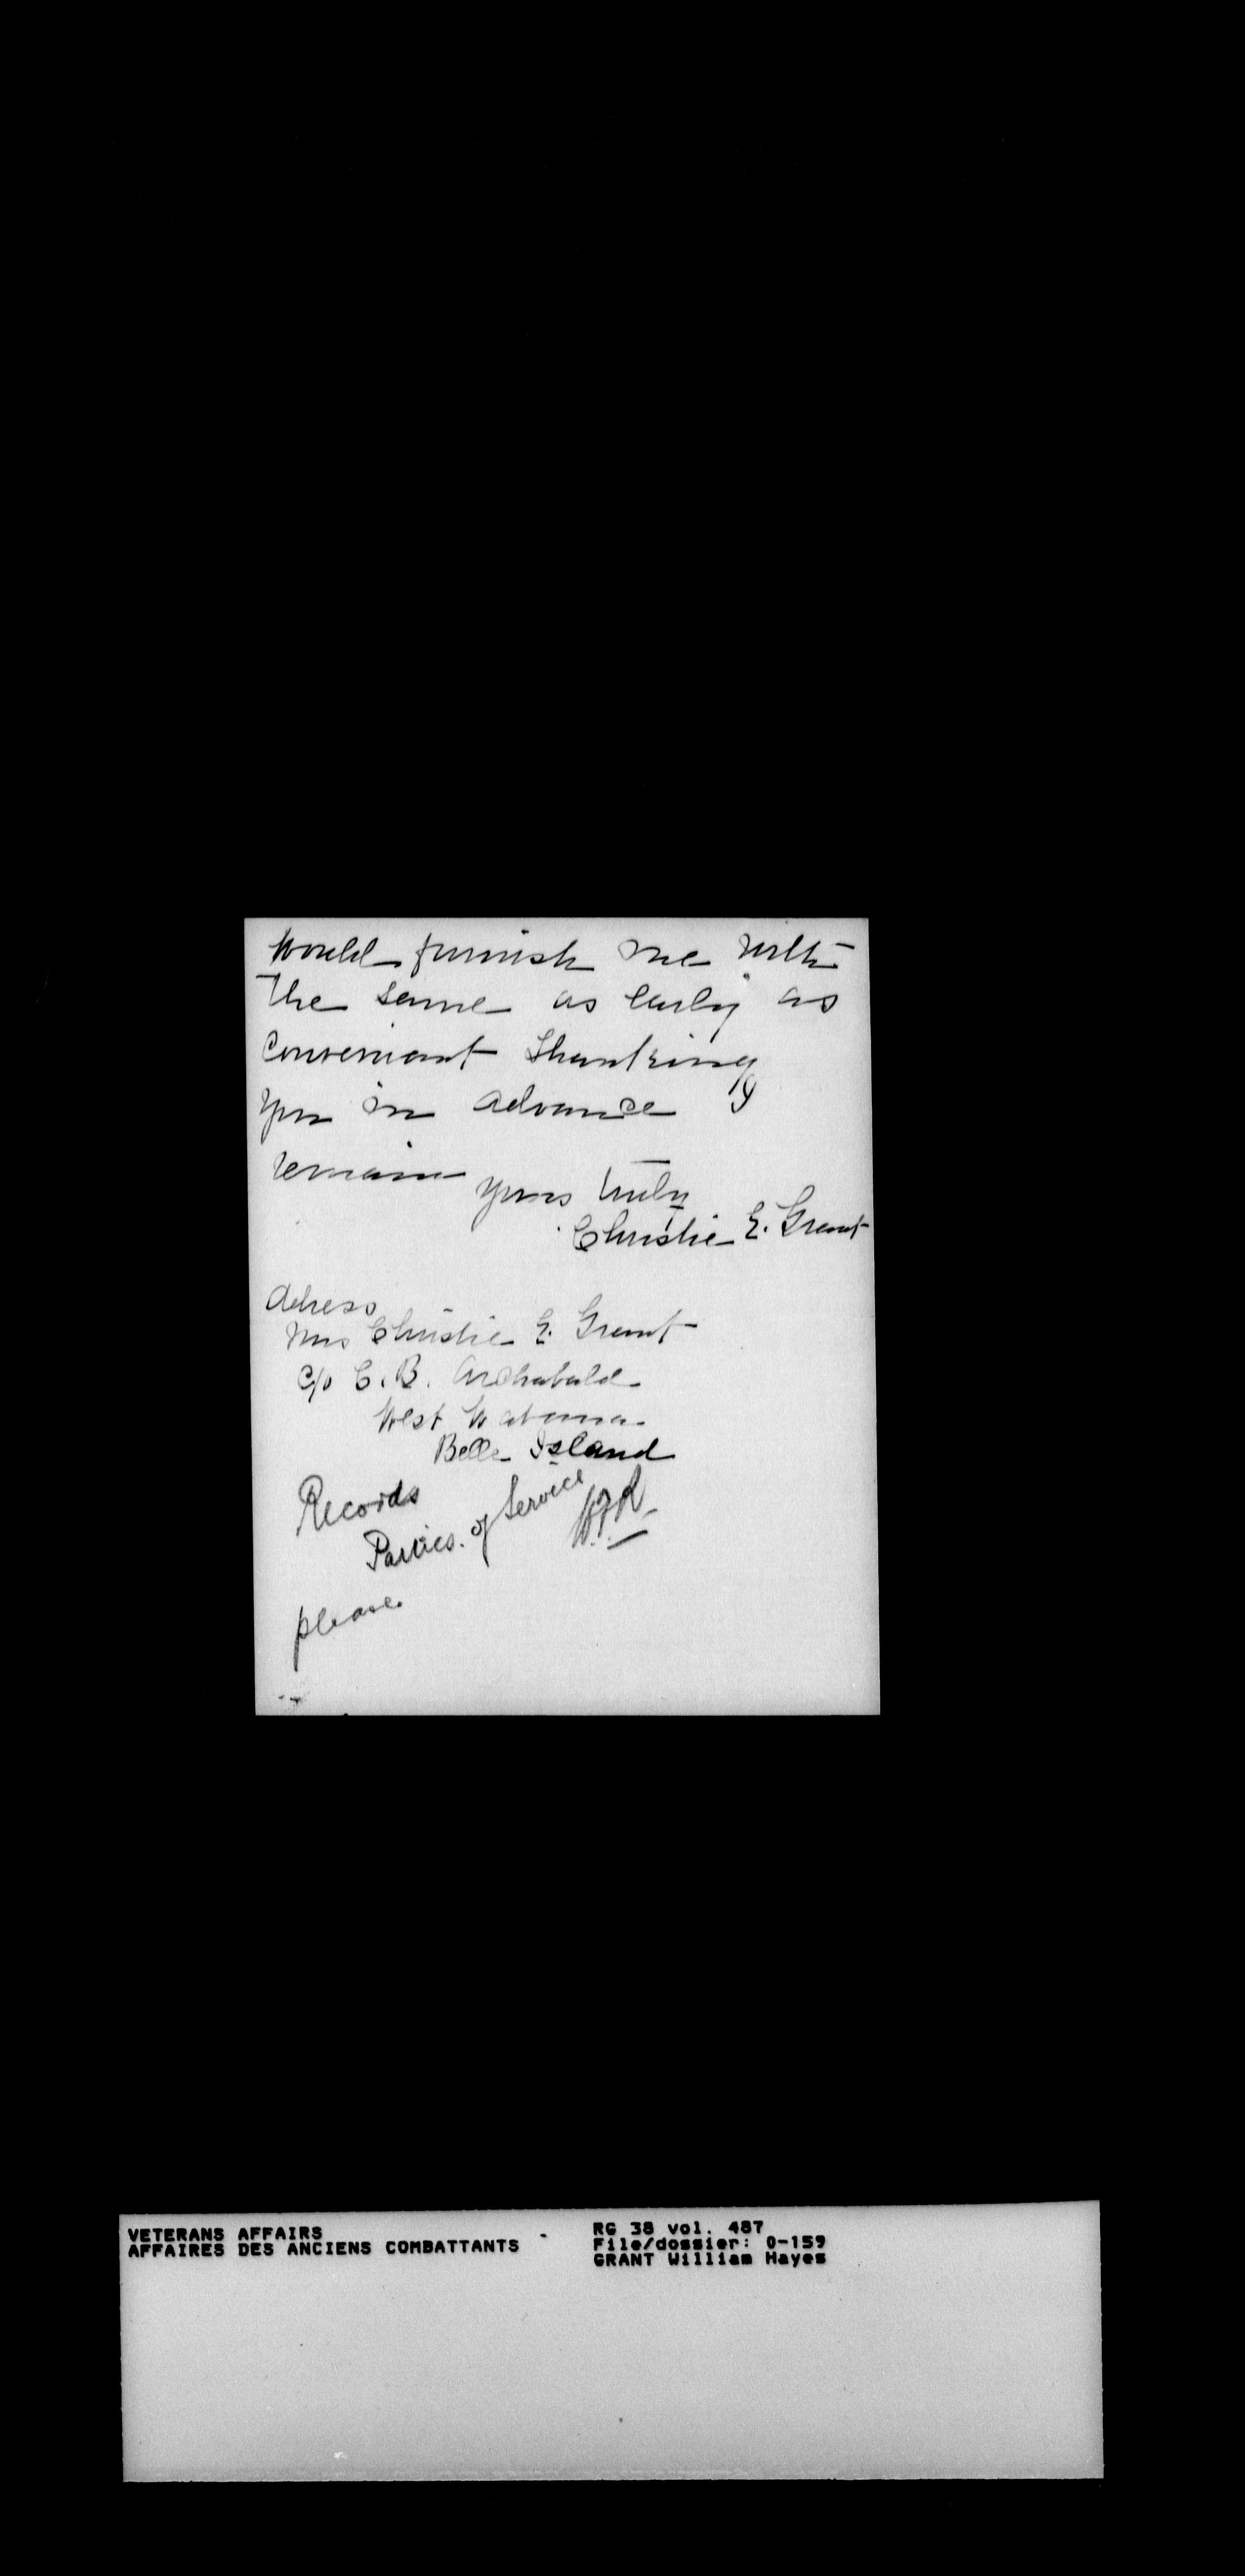 would furnish me with
the same as early as
convenient Thanking
you in advance I
remain
yours truly
Christie E. Grant
Adress
Mrs Christie E. Grant
c/o C. B. Archabald
West Wabana
Belle Island
Records
Partics. of Service
please
VETERANS AFFAIRS
AFFAIRES DES ANCIENS COMBATTANTS
RG 38 vol. 487
File/dossier: 0-159
GRANT William Hayes